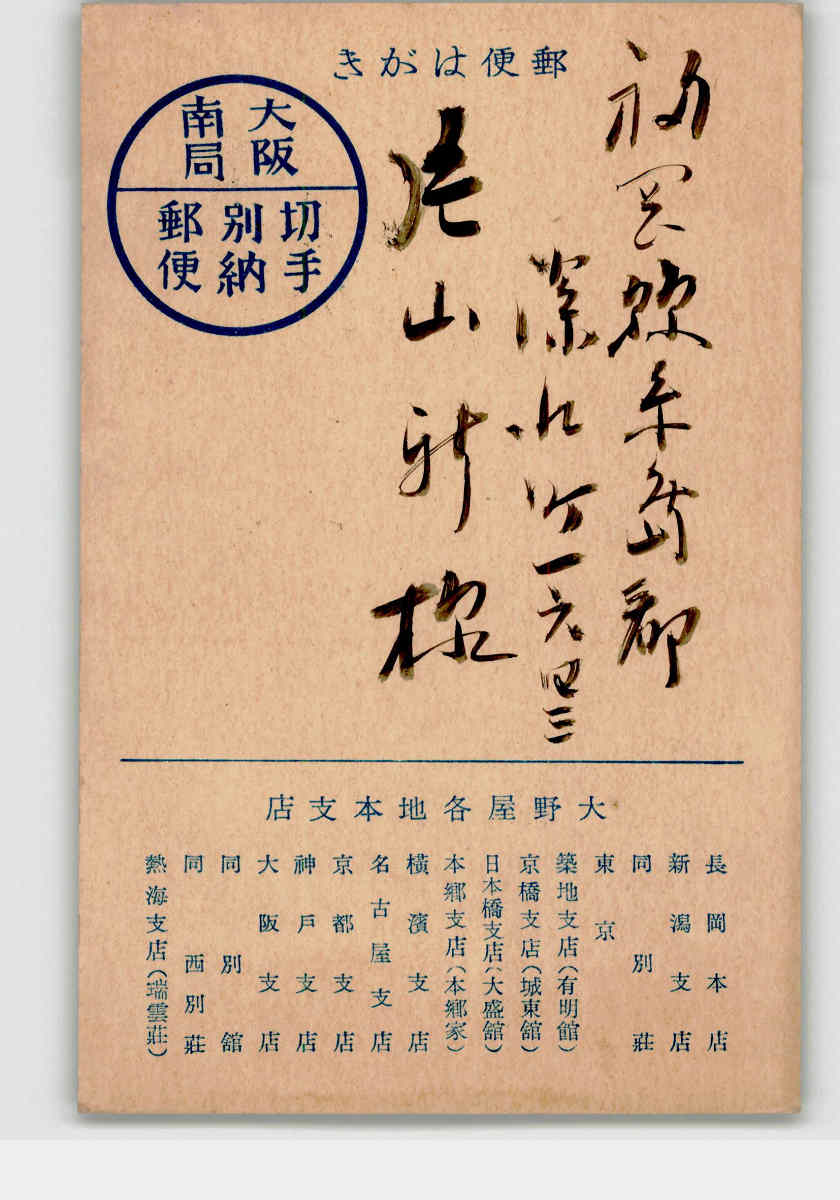 郵便はがき
福岡縣糸島郡
深江町一六四三
山新様
大阪南局
切手別納郵便
大野屋各地本支店
長岡本店
新潟支店
同別莊
東京
築地支店(有明館)
京橋支店(城東舘)
日本橋支店(大盛舘)
本郷支店(本郷家)
横濱支店
名古屋支店
京都支店
神戸支店
大阪支店
同別舘
同西別莊
熱海支店(瑞雲莊)